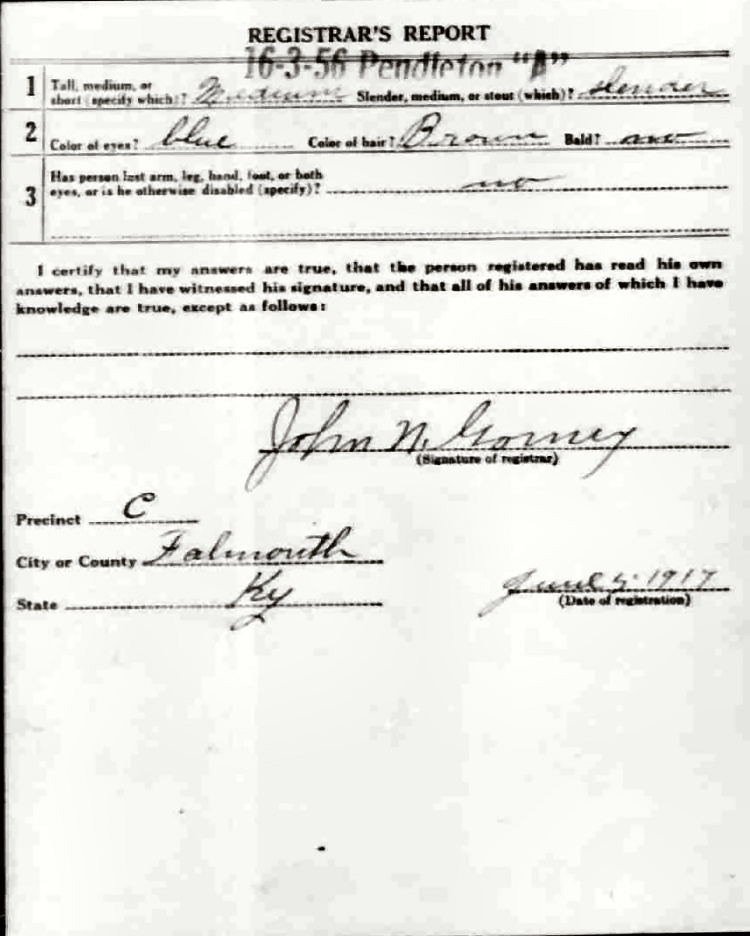 REGISTRAR'S REPORT
16-3-56 Pendleton "A"
1 Tall, medium, or short (specify which)? Medium Slender, medium, or stout (which)? slender
2 Color of eyes? blue Color of hair? Brown Bald? no
3 Has person lost arm, leg, hand, foot, or both
eyes, or is he otherwise disabled (specify)? no
I certify that my answers are true, that the person registered has read his own
answers, that I have witnessed his signature, and that all of his answers of which I have
knowledge are true, except as follows:
John N. Gorney
(Signature of registrar)
Precinct C
City or County Falmouth
State Ky
June 5 1917
(Date of registration)